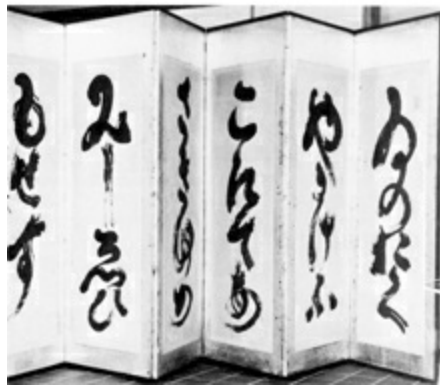 ゐのおく
やまけふ
こえてあ
さきゆめ
みしゑひ
もせす